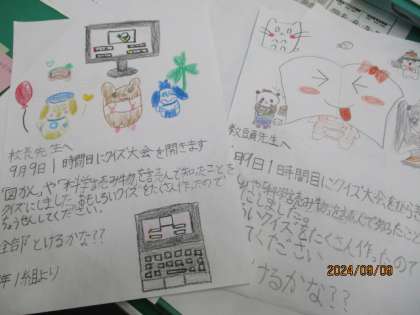 校長先生へ
9月9日1時間目にクイズ大会を開きます
「図かん」や「科学読み物」を読んで知ったことを
クイズにしました。おもしろいクイズをたくさん作ったので
ちょうせんしてください。
全部とけるかな??
年1組より
教頭先生へ
月9日1時間目にクイズ大会をひらき
や「科学読み物」を読んで知ったこ
にしました。
いクイズをたくさん作ったので
てください
けるかな??
2024/09/09